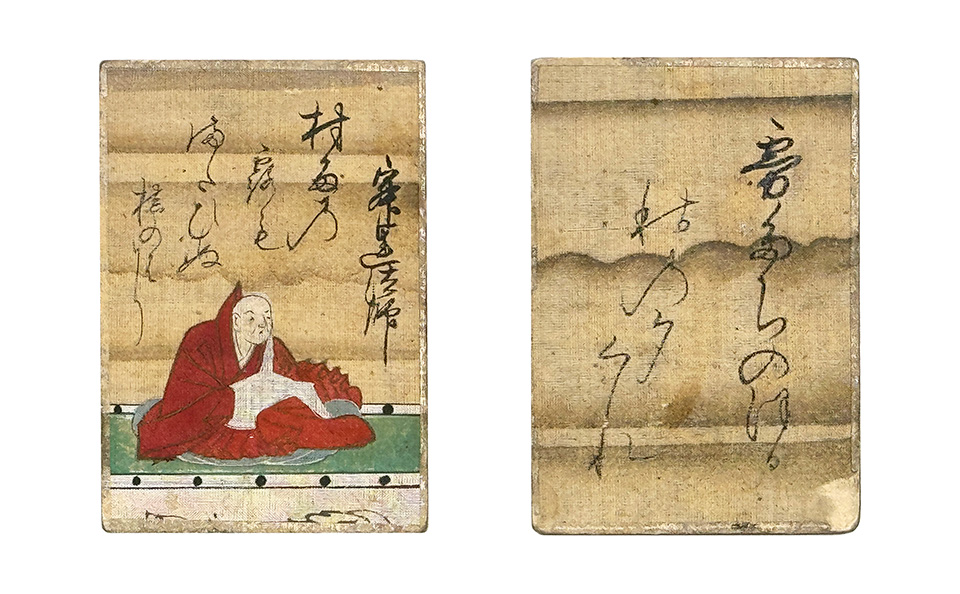 寂蓮法師
村雨の
露も
またひぬ
槙のはに
霧たちのほる
秋の夕
くれ